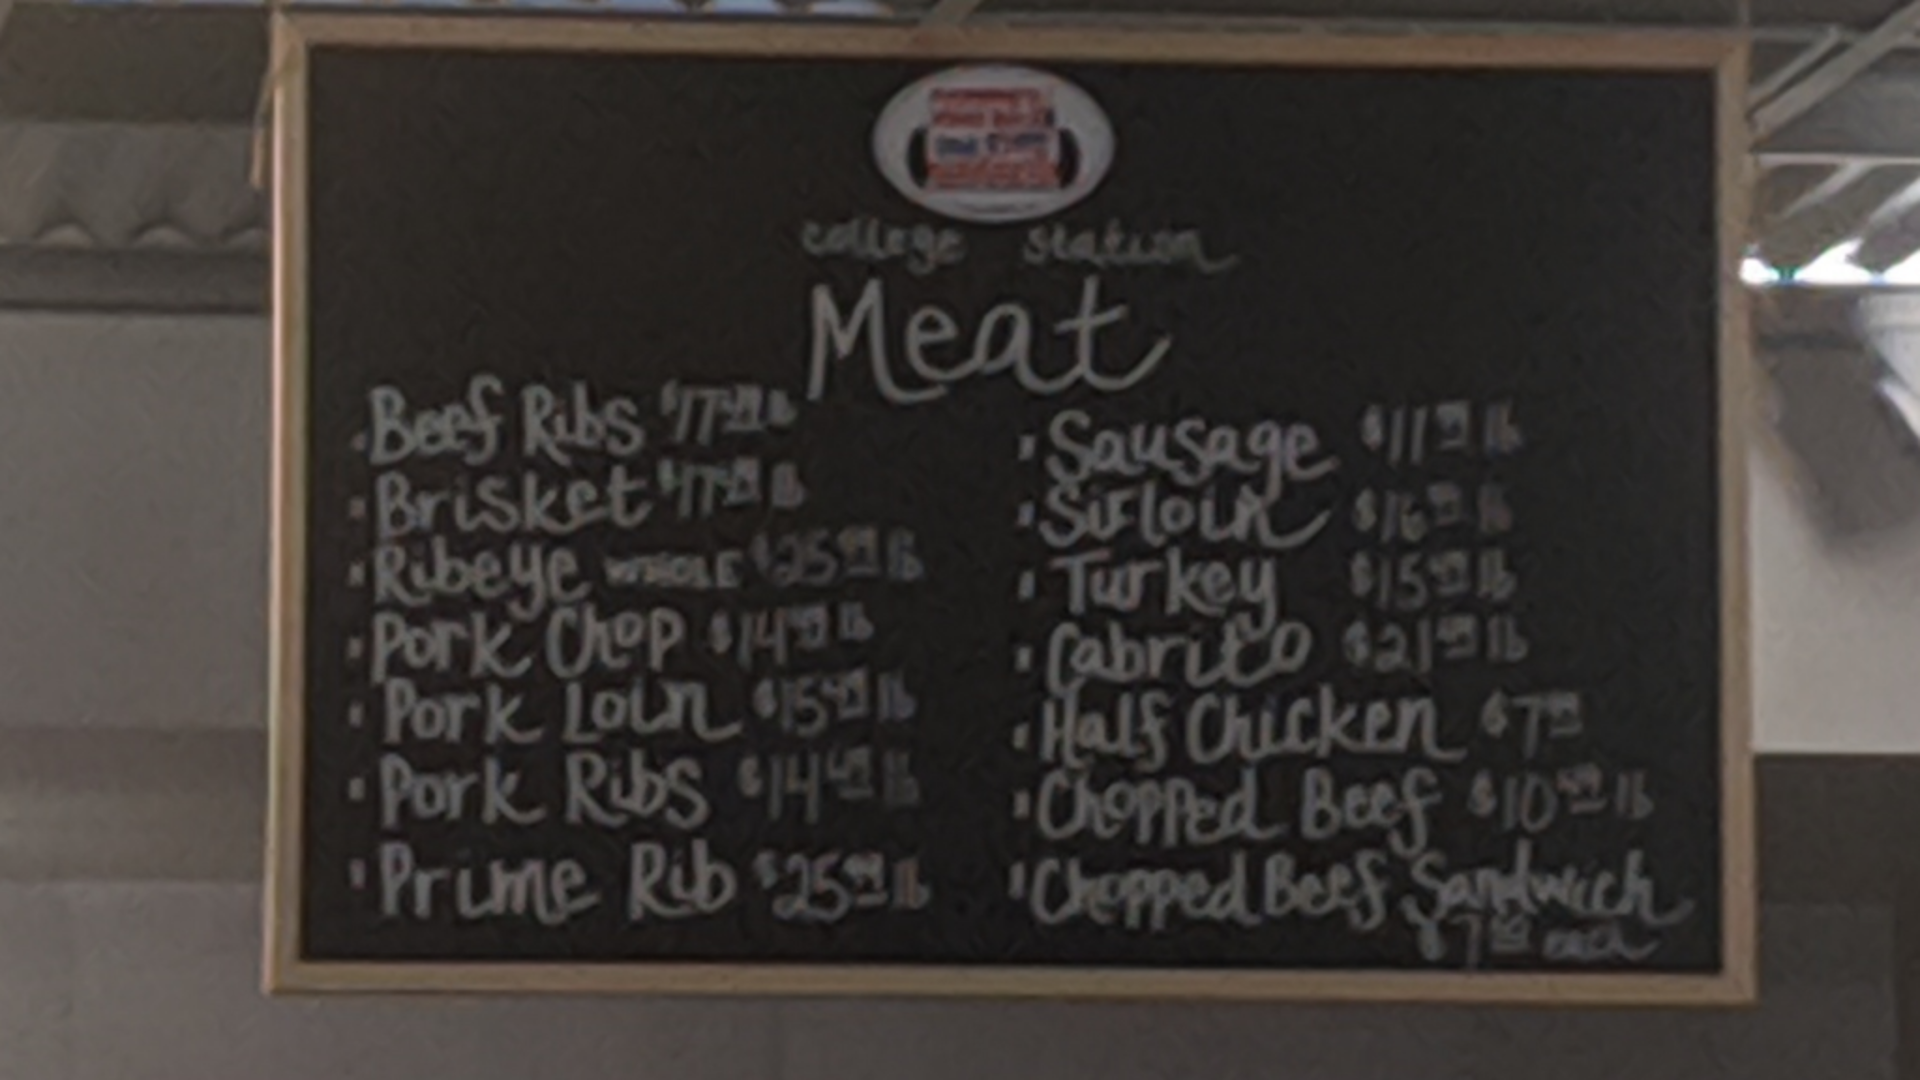 college station
Meat
Beef Ribs $17.49 lb
Brisket $17.49 lb
Ribeye WHOLE $25.99 lb
Pork Chop $14.49 lb
Pork Loin $15.49 lb
Pork Ribs $14.49 lb
Prime Rib $25.99 lb
Sausage $11.99 lb
Sirloin $16.99 lb
Turkey $15.49 lb
Cabrito $21.49 lb
Half Chicken $7.99
Chopped Beef $10.49 lb
Chopped Beef Sandwich
each